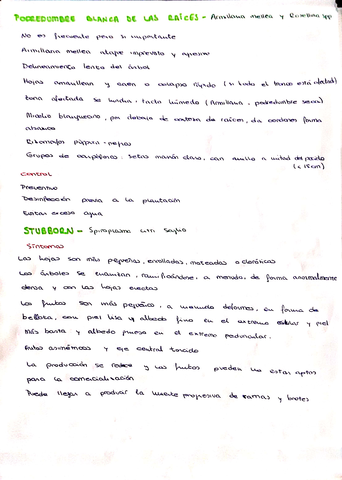 PODREDUMBRE BLANCA DE LAS RAÍCES - Armillaria mellea y Rosellinia spp
No es frecuente pero si importante
Armillaria mellea ataque imprevisto y agresivo
Debilitamiento lento del árbol
Hojas amarillean y caen o colapso rápido (si todo el tronco está afectado)
Zona afectada se hunde, tacto húmedo (Armillaria, podredumbre seca)
Micelio blanquecino, por debajo de corteza de raíces, da cordones forma abanico
Rizomorfos púrpura-negros
Grupos de carpóforos: setas marrón claro, con anillo a mitad del pie
(<15cm)
Control
Preventivo
Desinfección previa a la plantación
Evitar exceso agua
STUBBORN - Spiroplasma citri Saglio
Síntomas
Las hojas son más pequeñas, enrolladas, moteadas o cloróticas
Los árboles se enanizan, ramificándose, a menudo, de forma anormalmente
densa y con las hojas erectas
Los frutos son más pequeños, a menudo deformes, en forma de
bellota, con piel lisa y albedo fino en el extremo estilar y piel
más basta y albedo grueso en el extremo peduncular.
Frutos asimétricos y eje central torcido
La producción se reduce y los frutos pueden no estar aptos
para la comercialización
Puede llegar a producir la muerte progresiva de ramas y brotes